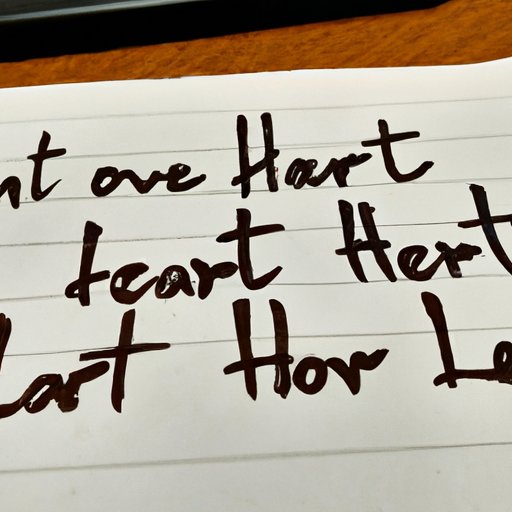 nt ove Hart
Leart Hert
Lart Hor Le